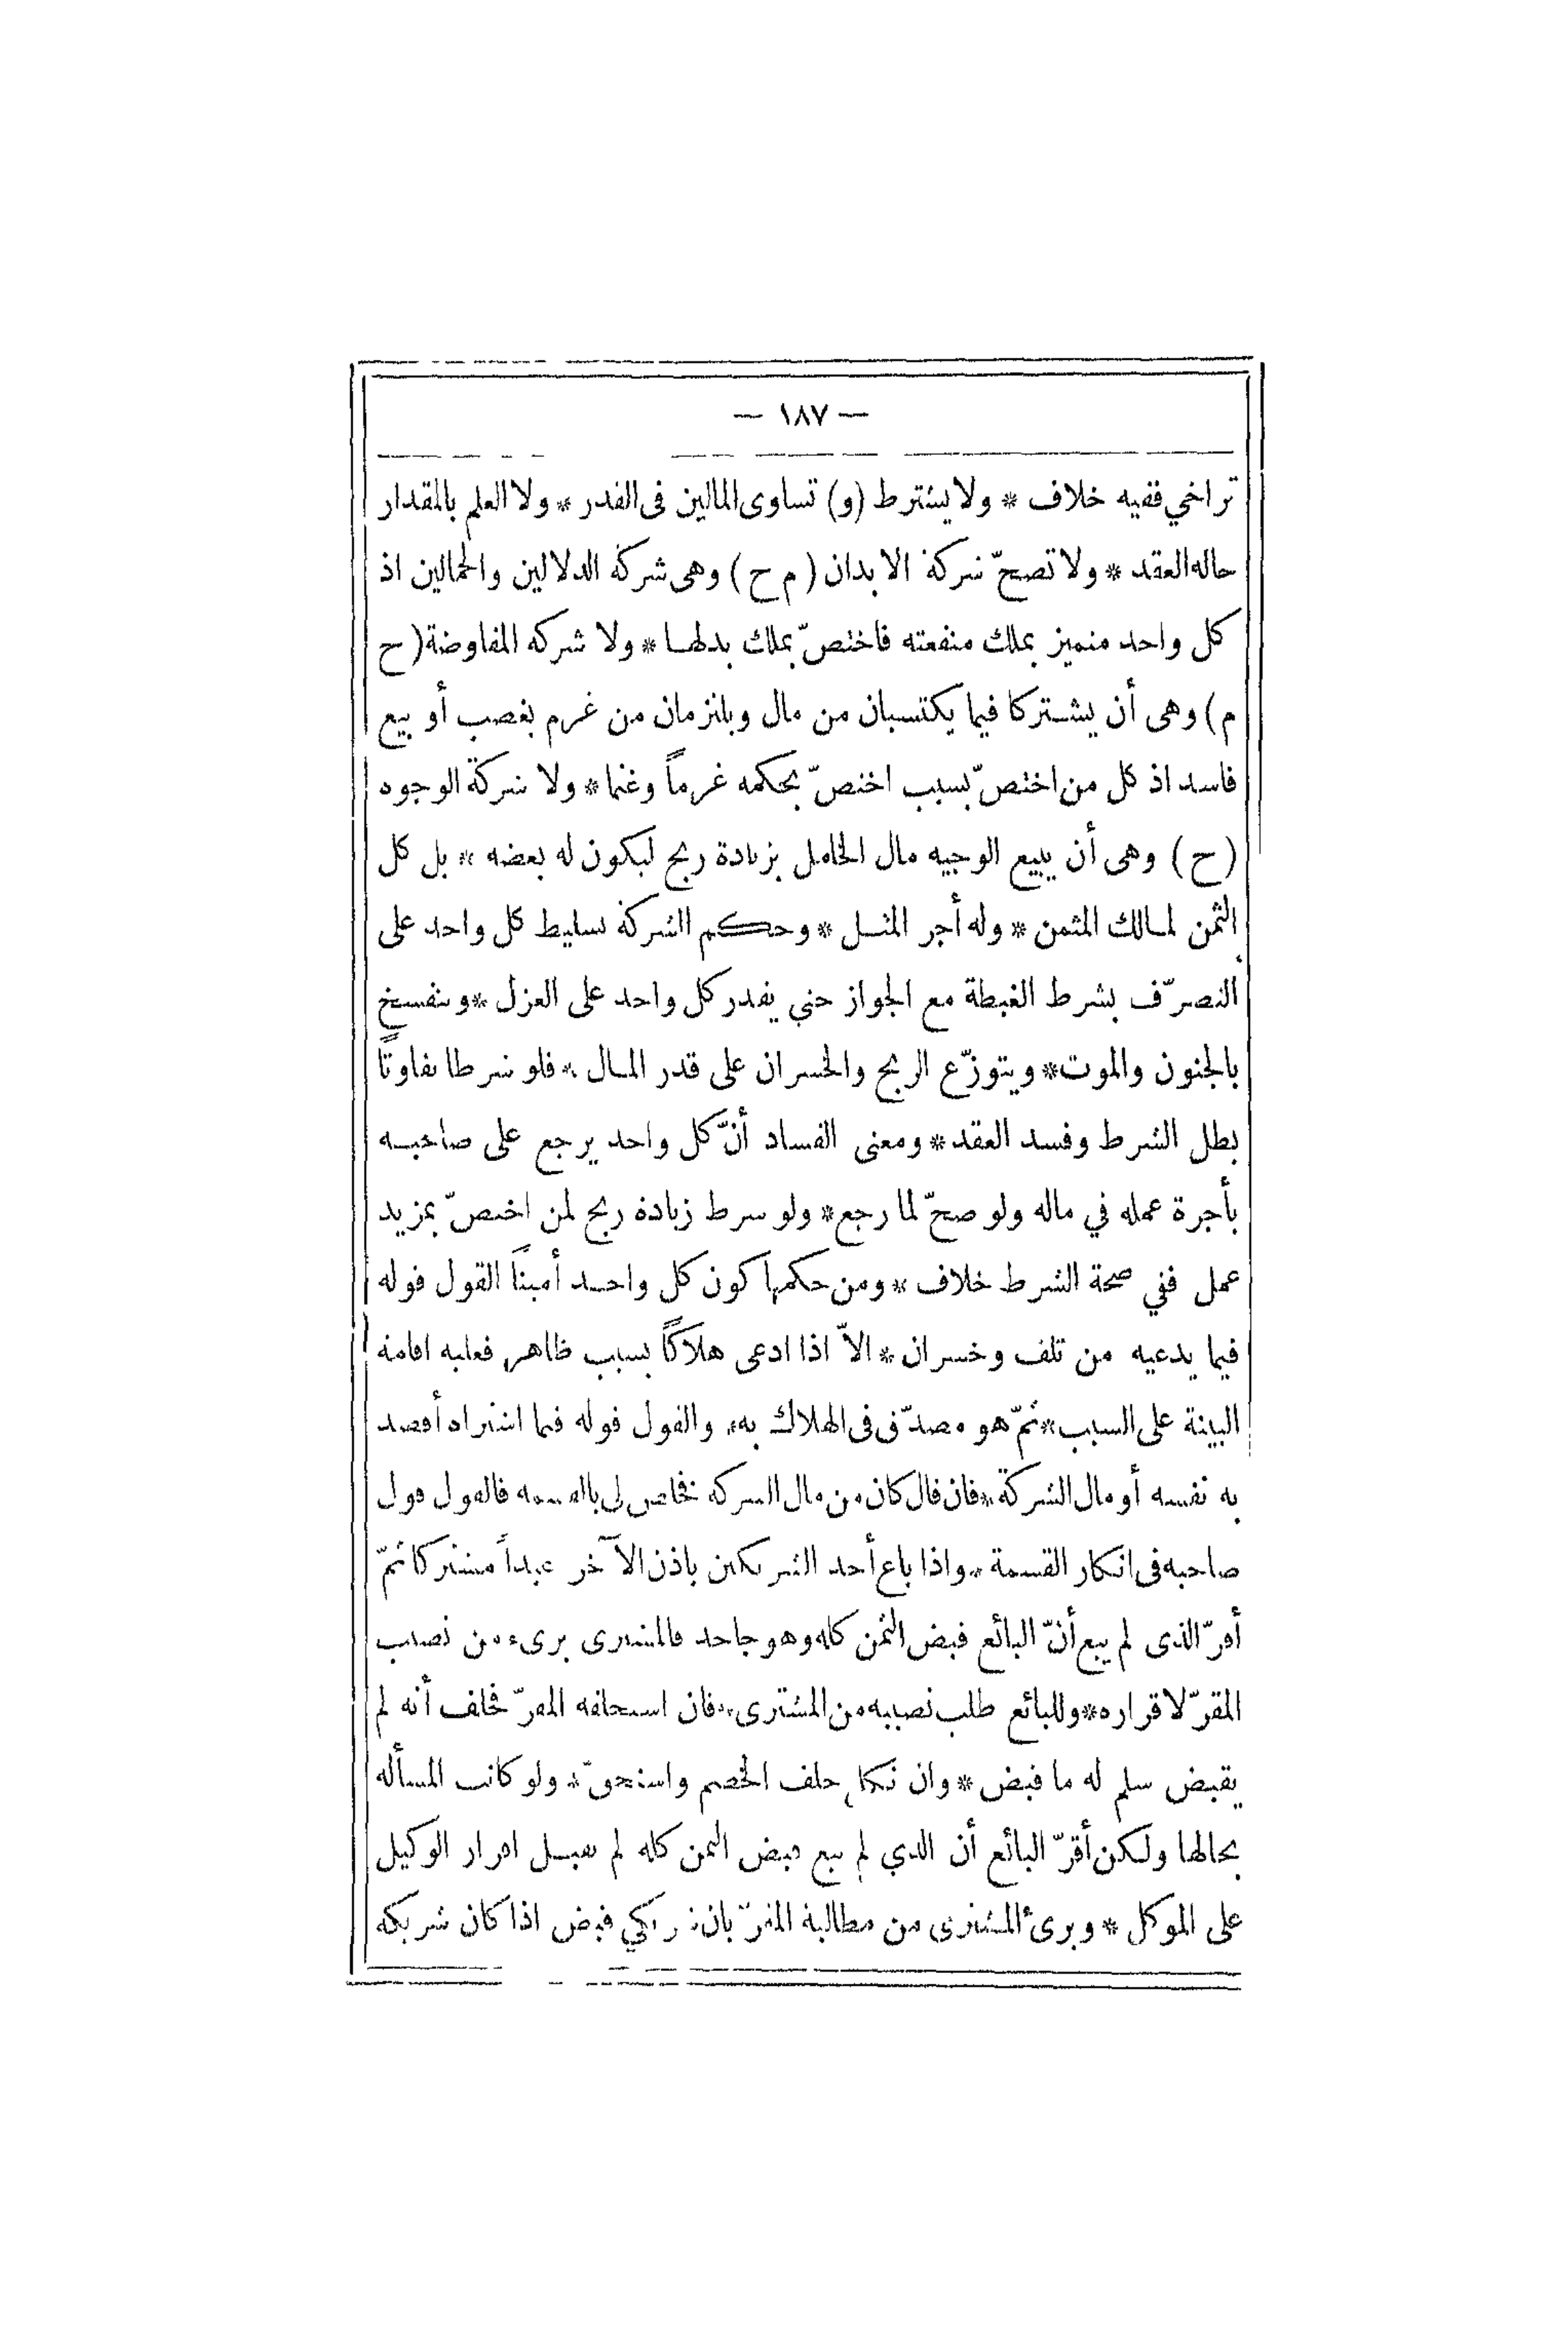 — ١٨٧ —
تراخي ففيه خلاف * ولا يشترط (و) تساوى المالين فى القدر * ولا العلم بالمقدار
حاله العقد * ولا تصحّ شركة الابدان ( م ح ) وهى شركة الدلالين والحمالين اذ
كل واحد متميز بملك منفعته فاختصّ بملك بدلها * ولا شركه المفاوضة ( ح
م ) وهى أن يشتركا فيما يكتسبان من مال ويلتزمان من غرم بغصب أو بيع
فاسد اذ كل من اختصّ بسبب اختصّ بحكمه غرماً وغنما * ولا شركة الوجوه
( ح ) وهى أن يبيع الوجيه مال الخامل بزيادة ربح ليكون له بعضه * بل كل
الثمن لمالك المثمن * وله أجر المثل * وحكم الشركة تسليط كل واحد على
التصرّف بشرط الغبطة مع الجواز حتي يقدر كل واحد على العزل * وتنفسخ
بالجنون والموت * ويتوزّع الربح والخسران على قدر المال * فلو شرطا تفاوتاً
بطل الشرط وفسد العقد * ومعنى الفساد أنّ كل واحد يرجع على صاحبه
بأجرة عمله في ماله ولو صحّ لما رجع * ولو شرط زيادة ربح لمن اختصّ بمزيد
عمل ففي صحة الشرط خلاف * ومن حكمها كون كل واحد أميناً القول قوله
فيما يدعيه من تلف وخسران * الاّ اذا ادعى هلاكاً بسبب ظاهر فعليه اقامة
البينة على السبب * ثمّ هو مصدّق فى الهلاك به * والقول قوله فيما اشتراه أقصد
به نفسه أو مال الشركة * فان قال كان من مال الشركه فخلص لى بالقسمه فالقول قول
صاحبه فى انكار القسمة * واذا باع أحد الشريكين باذن الآخر عبداً مشتركا ثمّ
أقرّ الذى لم يبع أنّ البائع قبض الثمن كله وهو جاحد فالمشترى برىء من نصيب
المقرّ لاقراره * وللبائع طلب نصيبه من المشترى * فان استحلفه المقرّ فحلف أنه لم
يقبض سلم له ما قبض * وان نكل حلف الخصم واستحقّ * ولو كانت المسأله
بحالها ولكن أقرّ البائع أن الذي لم يبع قبض الثمن كله لم يقبل اقرار الوكيل
على الموكل * وبرئ المشترى من مطالبة المقرّ بان شريكي قبض اذا كان شريكه